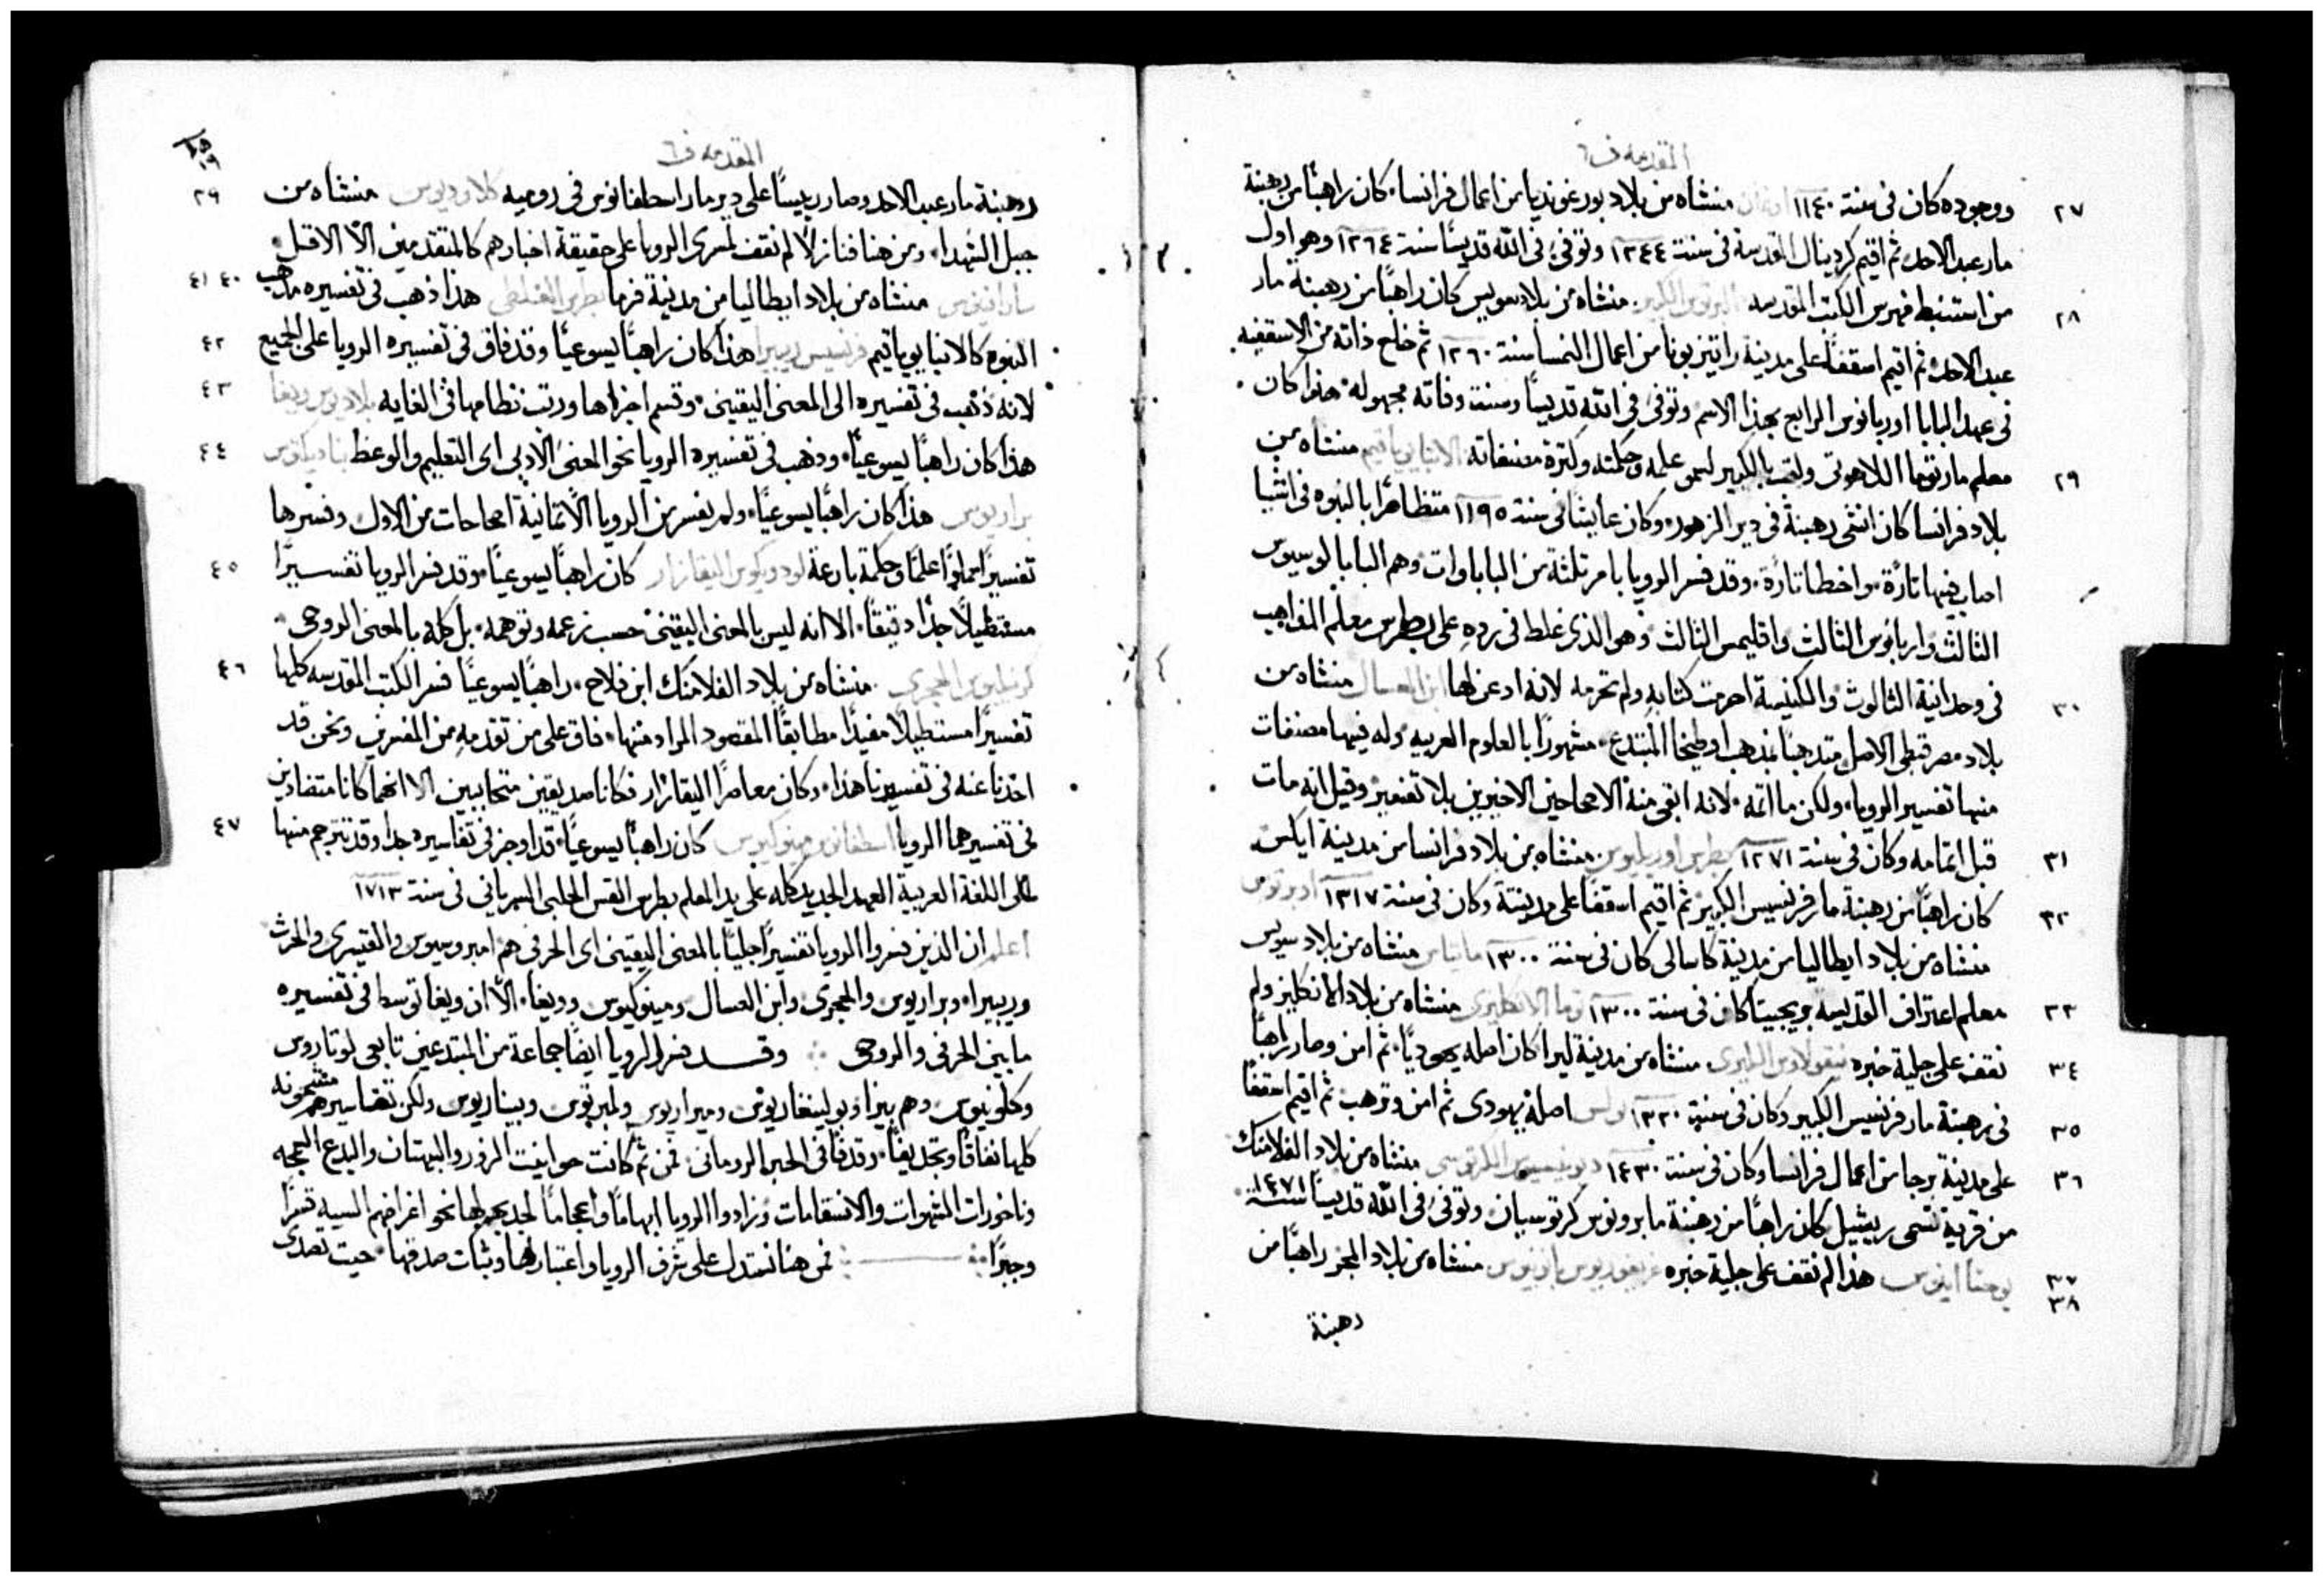 المقدمه ف٦
٢٧ ووجوده كان فى سنة ١١٤٠ منشاه من بلاد بورغونديا من اعمال فرانسا، كان راهبًا من رهبنة
مار عبد الاحد ثم اقيم كردينال القديسه فى سنة ١٢٤٤ وتوفى فى الله قديسًا سنة ١٢٦٤ وهو اول
٢٨ من استنبط فهرس الكتب المقدسه البرتوس الكبير منشاه من بلاد سويس كان راهبًا من رهبنة مار
عبد الاحد ثم اقيم اسقفًا على مدينة راتيزبونا من اعمال النمسا سنة ١٢٦٠ ثم خلع ذاته من الاسقفيه
فى عهد البابا اوربانوس الرابع بهذا الاسم وتوفى فى الله قديسًا وسنة وفاته مجهوله، هذا كان
٢٩ معلم مار توما اللاهوتى ولقب بالكبير لسمو علمه وحكمته وكثرة مصنفاته الانبا يوياقيم منشاه من
بلاد فرانسا كان انشى رهبنة فى دير الزهور، وكان عايشًا فى سنة ١١٩٥ متظاهرًا بالنبوه فى اشيا
اصاب فيها تارة، واخطا تارة، وقد فسر الرويا بامر ثلثة من الباباوات وهم البابا لوسيوس
الثالث واربانوس الثالث واقليمس الثالث وهو الذى غلط فى رده على بطرس معلم المذاهب
٣٠ فى وحدانية الثالوث والكنيسة احرمت كتابه ولم تحرمه لانه اذعن لها ابن العسال منشاه من
بلاد مصر قبطى الاصل متذهبًا بمذهب اوطيخا المبتدع، مشهورًا بالعلوم العربيه وله فيها مصنفات
منها تفسير الرويا، ولكن ما اتمه، لانه ابقى منه الاصحاحين الاخيرين بلا تفسير وقيل انه مات
٣١ قبل اتمامه وكان فى سنة ١٢٧١ بطرس اوريليوس منشاه من بلاد فرانسا من مدينة ايكس
٣٢ كان راهبًا من رهبنة مار فرنسيس الكبير ثم اقيم اسقفًا على مدينته وكان فى سنة ١٣١٧ اوبرتوس
منشاه من بلاد ايطاليا من مدينة كاسالى كان فى سنة ١٣٠٠ ماتياس منشاه من بلاد سويس
٣٣ معلم اعتراف القديسه بريجيتا كان فى سنة ١٣٠٠ توما الانكليزى منشاه من بلاد الانكليز ولم
٣٤ نقف على جلية خبره نيقولاوس الليرى منشاه من مدينة ليرا كان اصله يهوديًا، ثم امن وصار راهبًا
٣٥ فى رهبنة مار فرنسيس الكبير وكان فى سنة ١٣٣٠ بولس اصله يهودى ثم امن وترهب ثم اقيم اسقفًا
٣٦ على مدينة برجا من اعمال فرانسا وكان فى سنة ١٤٣٠ ديونيسيوس الكرتوسى منشاه من بلاد الفلامنك
من قرية تسمى ريشيل كان راهبًا من رهبنة مار برونوس كرتوسيان وتوفى فى الله قديسًا سنة ١٤٧١
٣٧ ٣٨ يوحنا انيوس هذا لم نقف على جلية خبره غريغوريوس منشاه من بلاد المجر راهبًا من
رهبنة
المقدمه ف٦
١٩
٣٩ رهبنة مار عبد الاحد وصار رييسًا على دير مار اسطفانوس فى روميه كلاوديوس منشاه من
جبل الشهدا، ومن هنا فنازلًا لم نقف لمفسرى الرويا على حقيقة اخبارهم كالمتقدمين الا الاقل
٤٠ ٤١ سارافينوس منشاه من بلاد ايطاليا من مدينة فرما بطرس الغلطى هذا ذهب فى تفسيره مذهب
٤٢ النبوه كالانبا يوياقيم فرنسيس ريبيرا هذا كان راهبًا يسوعيًا وقد فاق فى تفسيره الرويا على الجميع
٤٣ لانه ذهب فى تفسيره الى المعنى اليقينى، وقسم اجزاها ورتب نظامها فى الغايه بلاديوس ريغا
٤٤ هذا كان راهبًا يسوعيًا، وذهب فى تفسيره الرويا نحو المعنى الادبى اى التعليم والوعظ بناديكتوس
براريوس هذا كان راهبًا يسوعيًا، ولم يفسر من الرويا الا ثمانية اصحاحات من الاول وفسرها
٤٥ تفسيرًا مملوًا علمًا وحكمة بارعة لودويكوس اليقازار كان راهبًا يسوعيًا، وقد فسر الرويا تفسيرًا
مستطيلًا جدًا دقيقًا، الا انه ليس بالمعنى اليقينى حسب زعمه وتوهمه، بل كله بالمعنى الروحى
٤٦ كرنيليوس الحجرى منشاه من بلاد الفلامنك ابن فلاح، راهبًا يسوعيًا فسر الكتب المقدسه كلها
تفسيرًا مستطيلًا مفيدًا مطابقًا المقصود المراد منها، فاق على من تقدمه من المفسرين ونحن قد
اخذنا عنه فى تفسيرنا هذا، وكان معاصرًا اليقازار فكانا صديقين متحابين الا انهما كانا متضادين
٤٧ فى تفسيرهما الرويا اسطفانوس مينوكيوس كان راهبًا يسوعيًا، قد اوجز فى تفاسيره جدا وقد ترجم منها
الى اللغة العربية العهد الجديد كله على يد المعلم بطرس القس الحلبى السريانى فى سنة ١٧١٣
اعلم ان الذين فسروا الرويا تفسيرًا جليًا بالمعنى اليقينى اى الحرفى هم امبروسيوس والقيسرى والحرث
وريبيرا، وبراريوس والحجرى وابن العسال ومينوكيوس وويغا، الا ان ويغا توسط فى تفسيره
ما بين الحرفى والروحى وقد فسر الرويا ايضًا جماعة من المبتدعين تابعى لوتاروس
وكلوينوس وهم بيزا وبولينغاريوس وميراريوس ولمبرتوس وبيناريوس ولكن تفاسيرهم مشحونه
كلها نفاقًا وتجديفًا، وقدفًا فى الحبر الرومانى فمن ثم كانت حوانيت الزور والبهتان والبدع السمجه
وناخورات الشهوات والانتقامات وزادوا الرويا ابهامًا واعجامًا لجذبهم لها نحو اغراضهم السيه قسرًا
وجبرًا فمن هنا نستدل على شرف الرويا واعتبارها وثبات صدقها، حيث تصدى